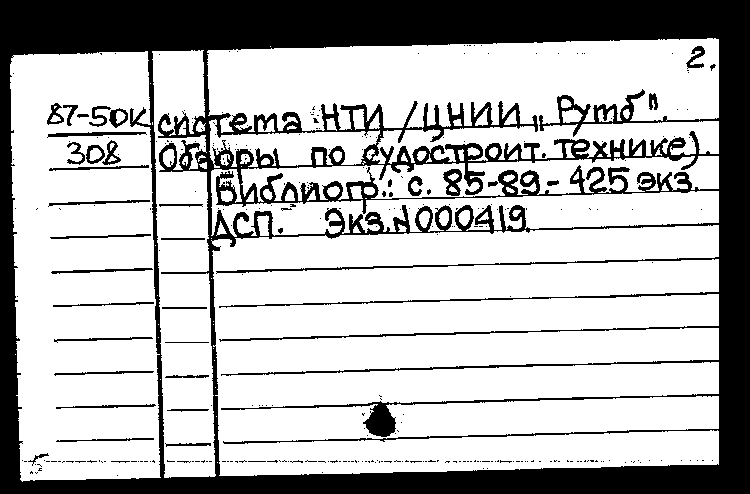 2.
87-5DK система НТИ /ЦНИИ „Румб".
308 Обзоры по судостроит. технике).
Библиогр.: с. 85-89.- 425 экз.
ДСП. Экз.N000419.
5